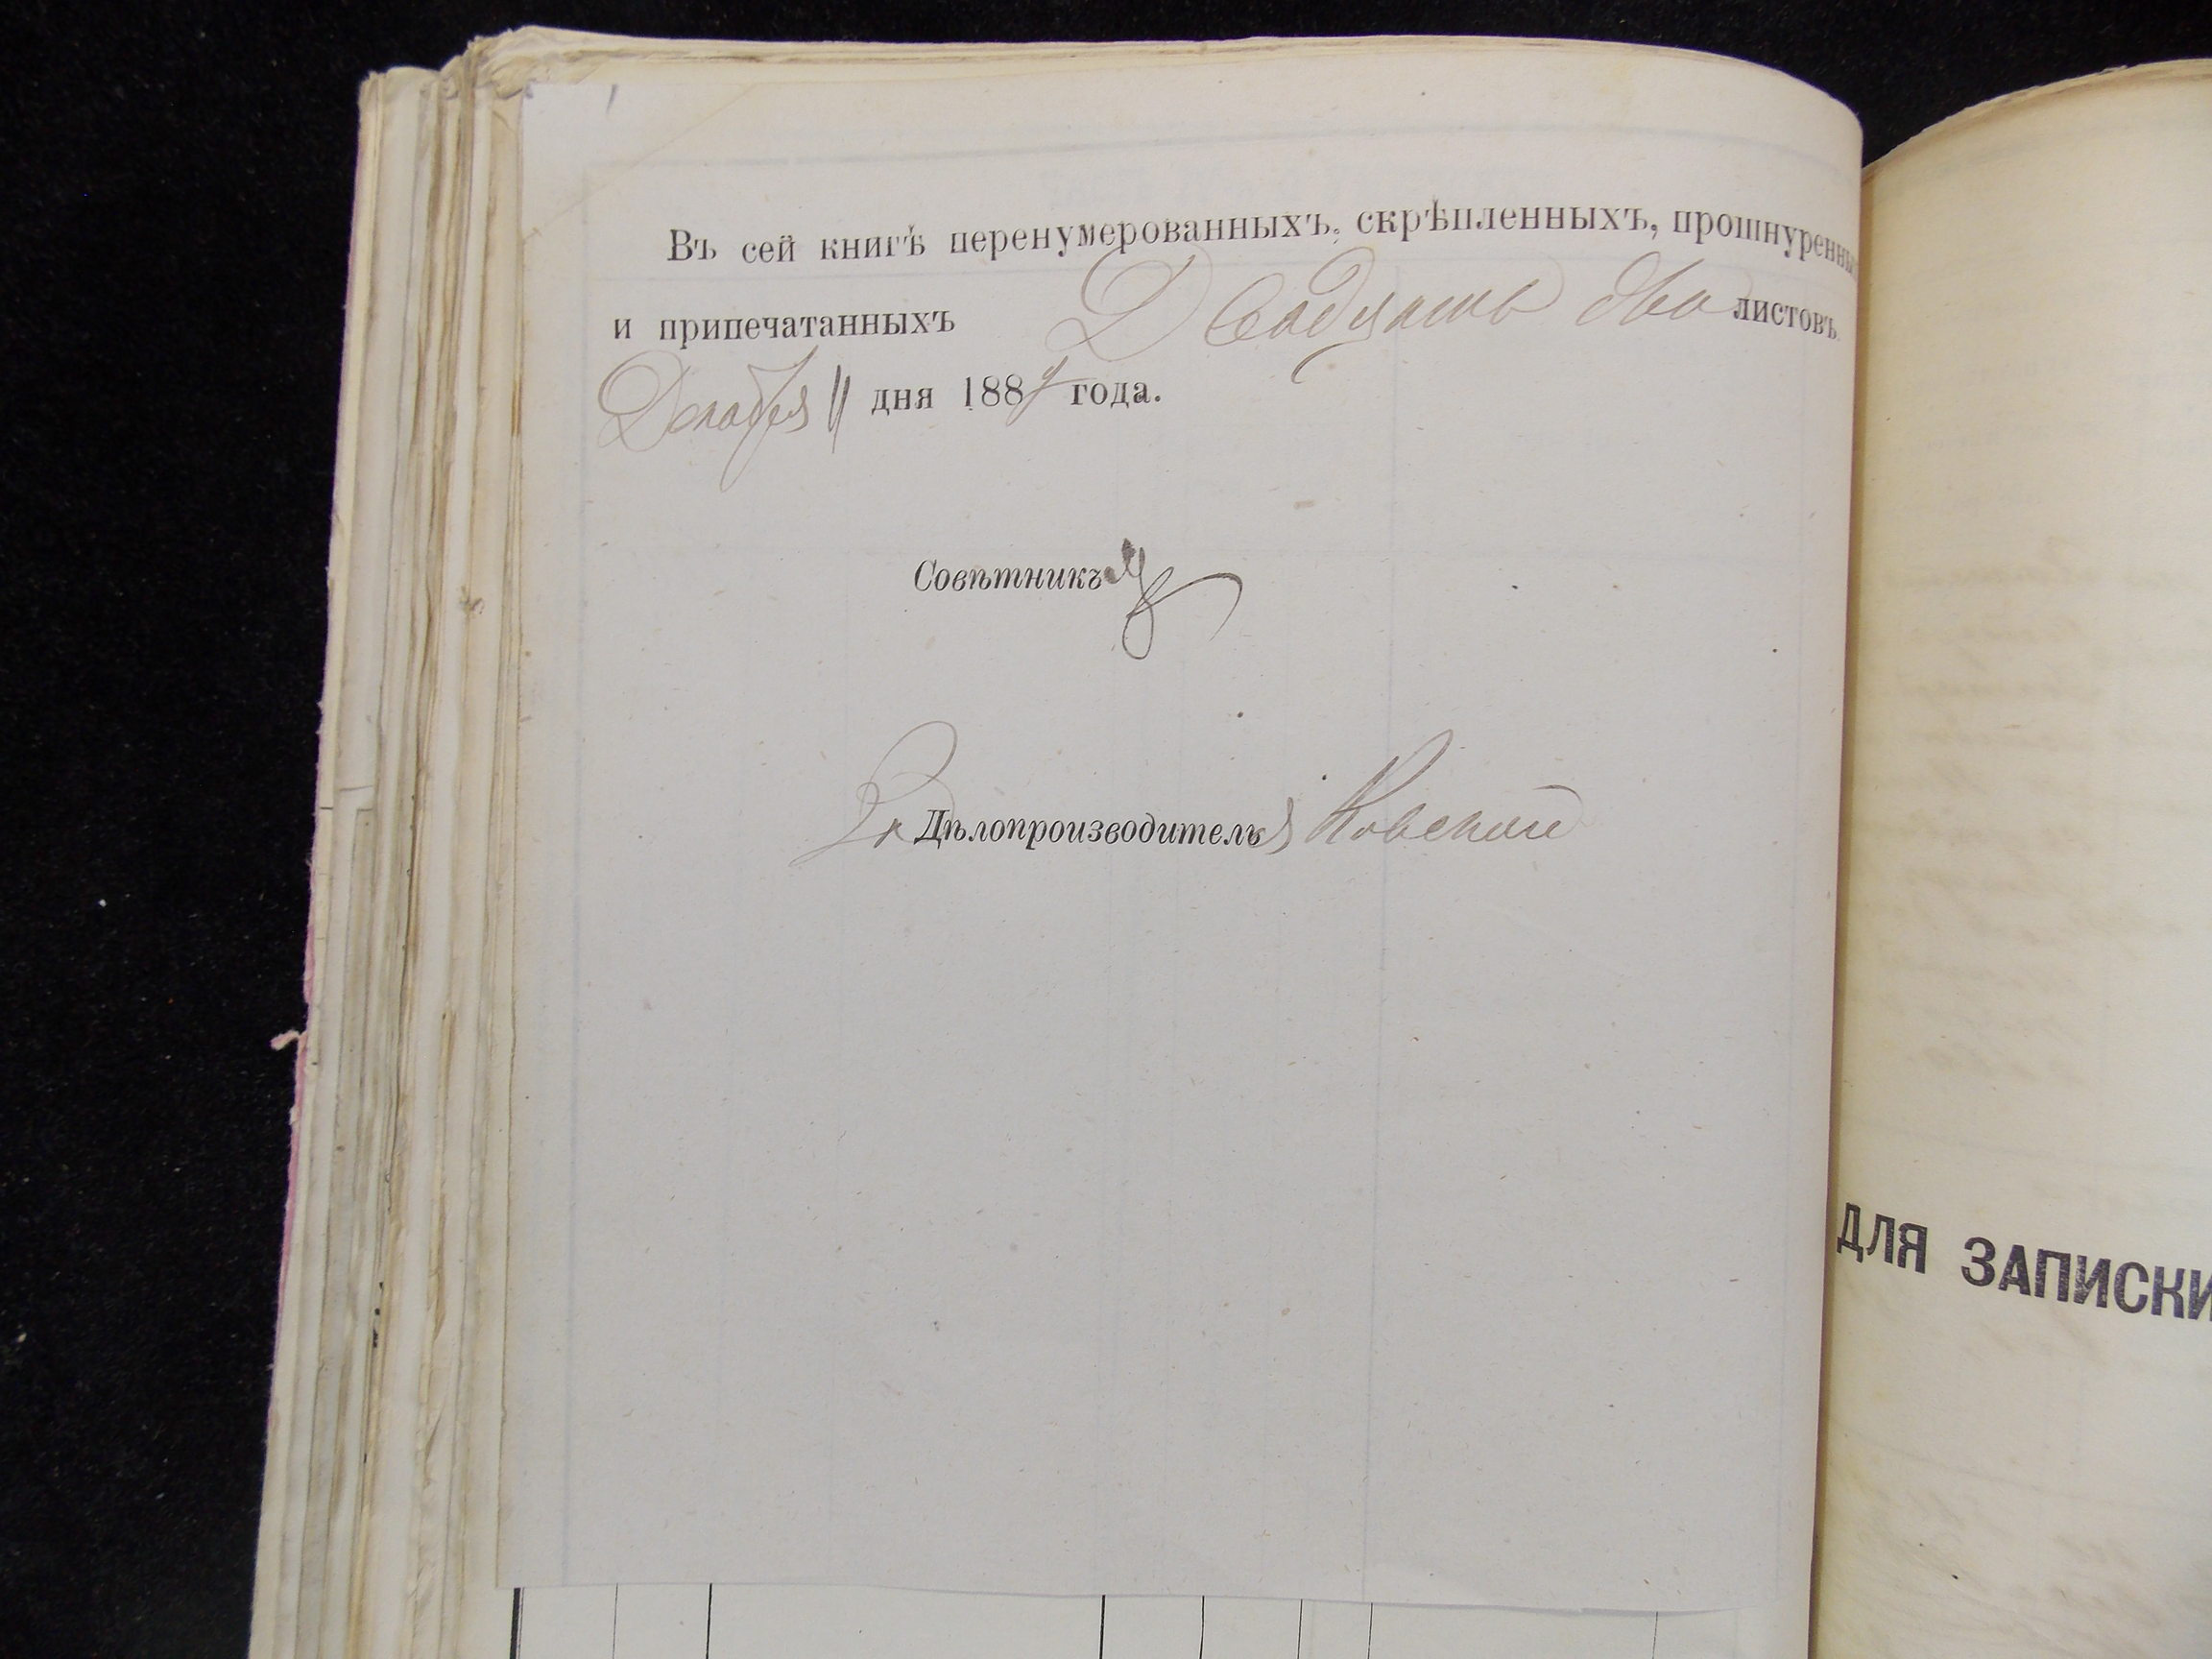 Въ сей книгѣ перенумерованныхъ, скрѣпленныхъ, прошнуренны
и припечатанныхъ Двадцать два листовъ.
Декабря 11 дня 1889 года.
Совѣтникъ
За Дѣлопроизводителя
ДЛЯ ЗАПИСКИ